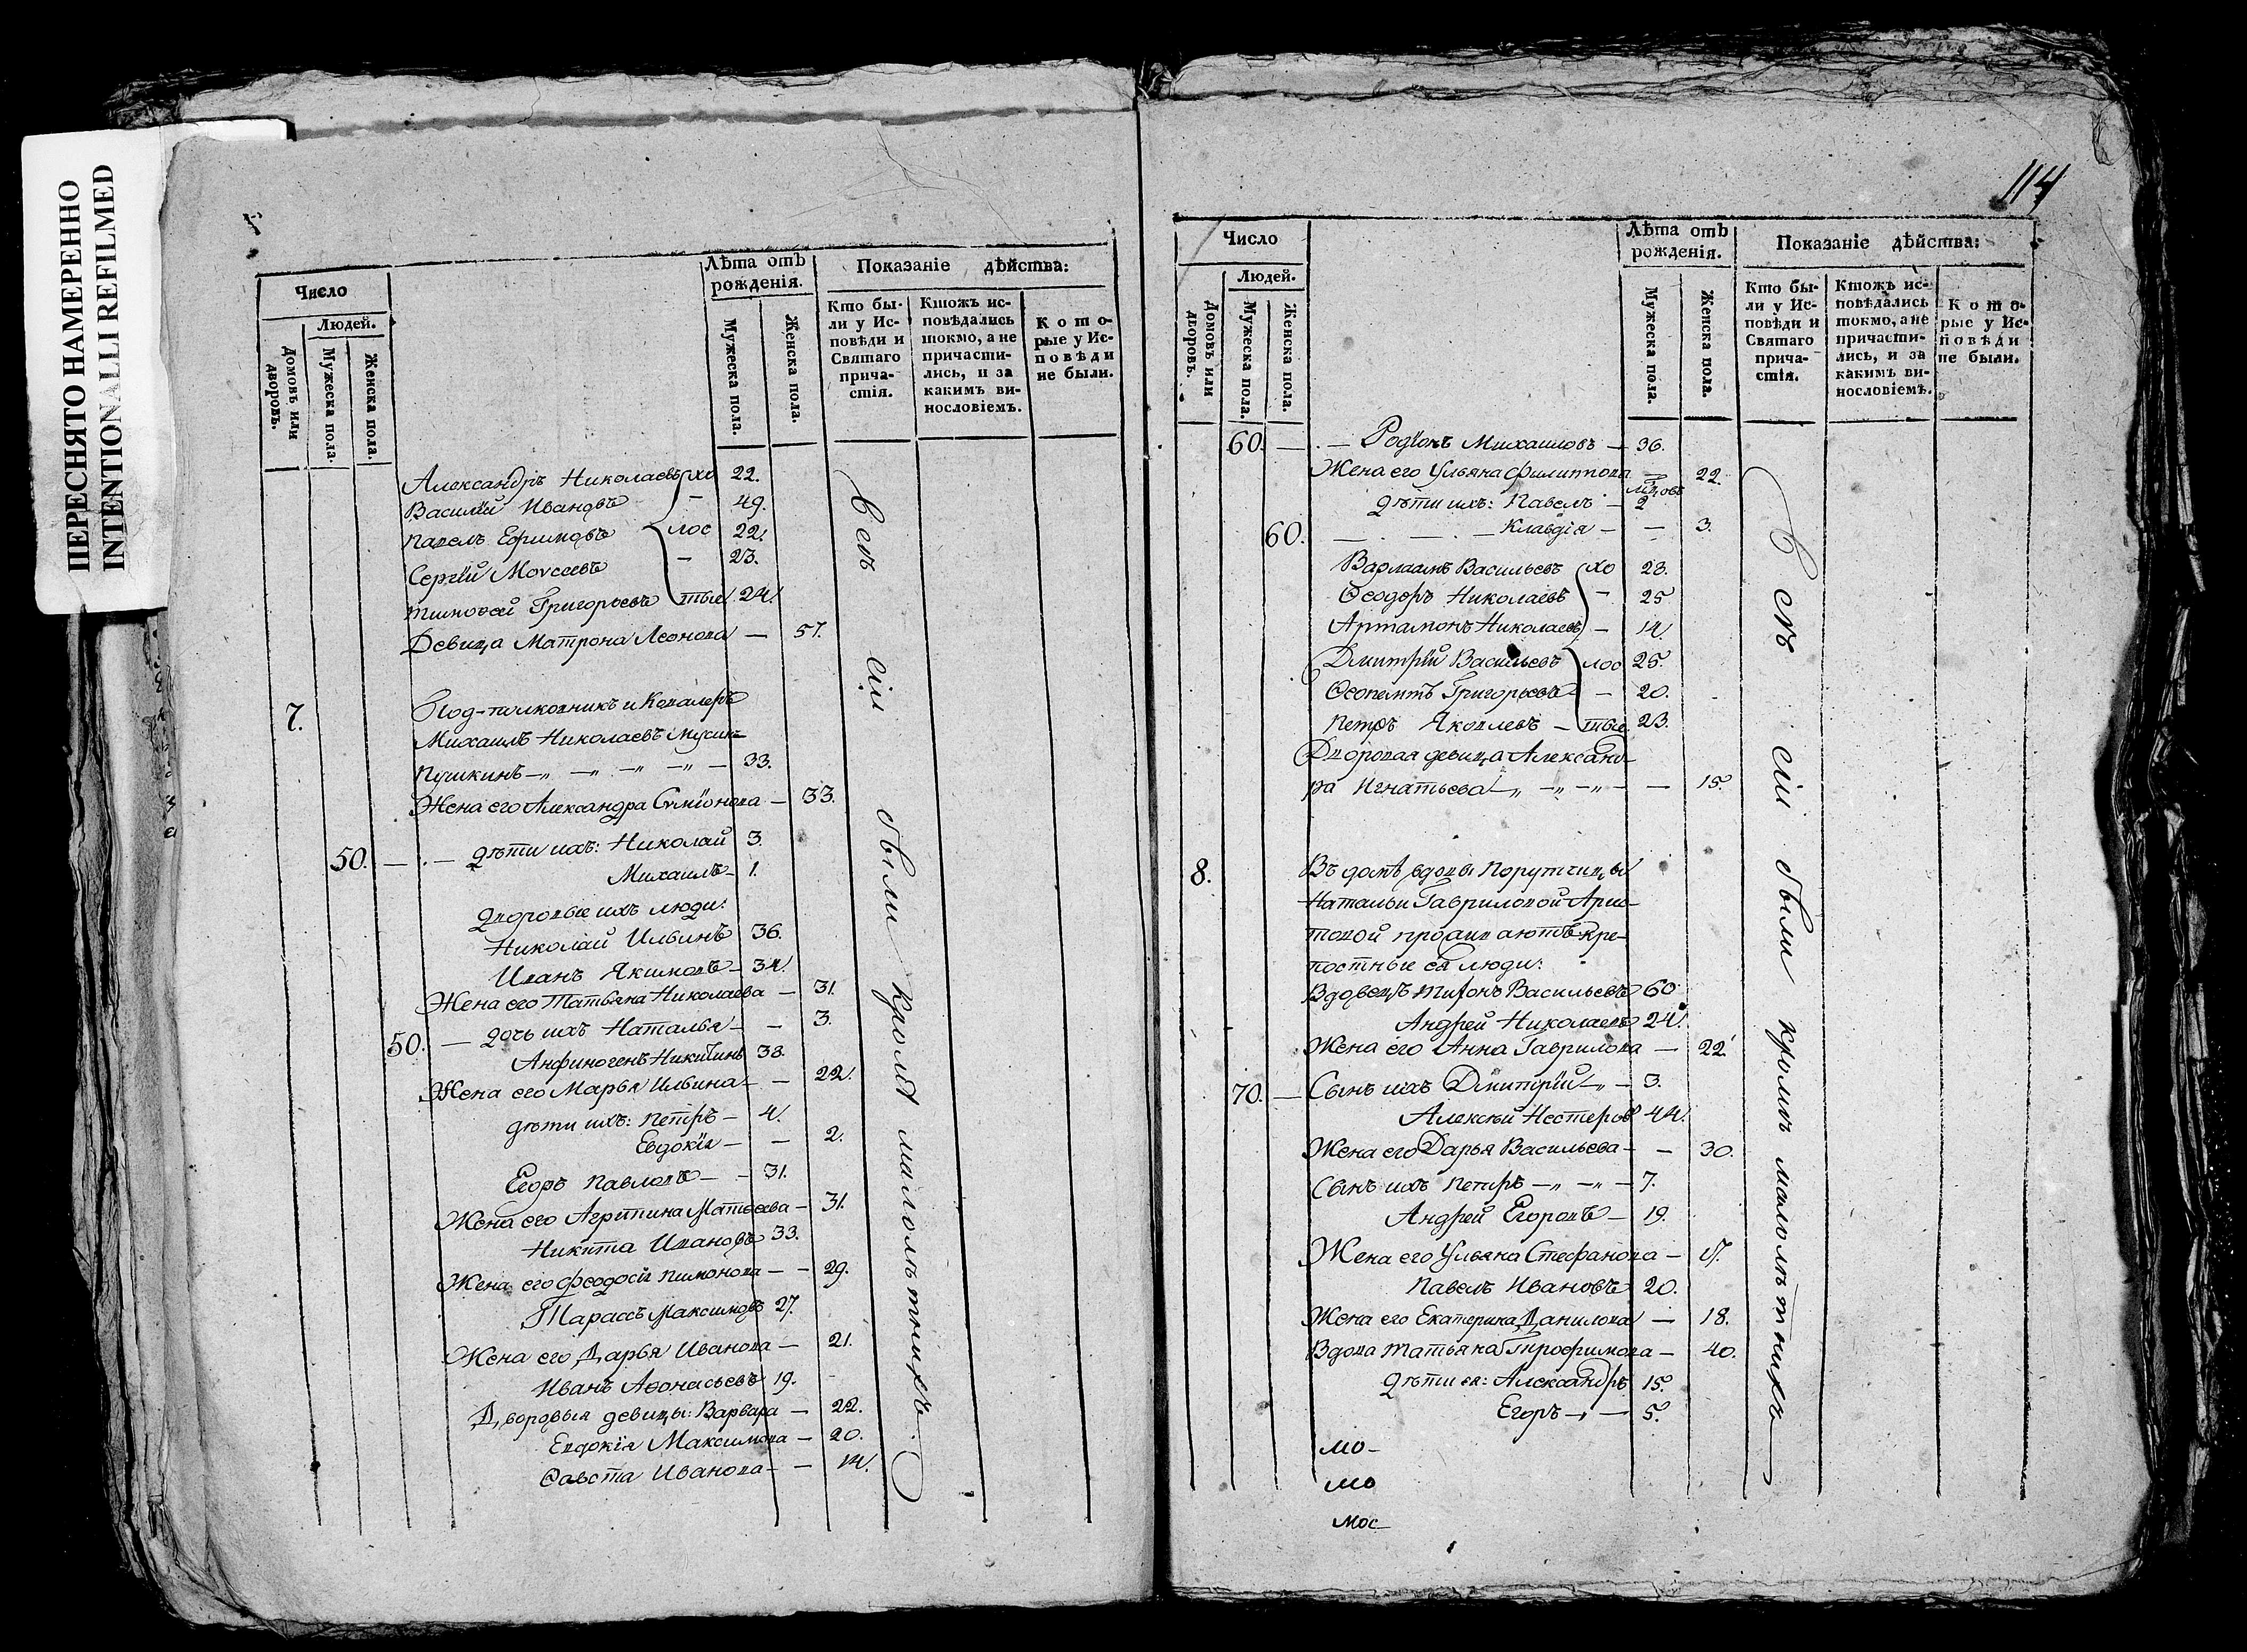 ПЕРЕСНЯТО НАМЕРЕННО
INTENTIONALLI REFILMED
Число
Людей.
Домовъ или дворовъ.
Мужеска пола.
Женска пола.
Лѣта отъ рожденія.
Мужеска пола.
Женска пола.
Показаніе дѣйства:
Кто бы-
ли у Ис-
повѣди и
Святаго
прича-
стія.
Ктожъ ис-
повѣдались
токмо, а не
причасти-
лись, и за
какимъ ви-
нословіемъ.
Кото-
рые у Ис-
повѣди
не были.
Александръ Николаевъ хо 22.
Василій Ивановъ — 49.
Павелъ Ефимовъ лос 22.
Сергій Моѵсеевъ — 23.
Тимоѳей Григорьевъ тые 24.
Девица Матрона Леонова — 57.
7. Под-полковникъ и Кавалеръ
Михаилъ Николаевъ Мусин-
Пушкинъ —„ —„ —„ —„ — 33.
Жена его Александра Сѵміонова — 33.
50. — . — дѣти ихъ: Николай 3.
Михаилъ — 1.
дворовые ихъ люди:
Николай Ильинъ 36.
Иванъ Якимовъ — 34.
Жена его Татьяна Николаева — 31.
50. — дочь ихъ Наталья — — 3.
Анфиногенъ Никитинъ 38.
Жена его Марья Ильина — — 22.
дѣти ихъ: Петръ — 4.
Евдокія — — 2.
Егоръ Павловъ — — 31.
Жена его Агрипина Матвеева — 31.
Никита Ивановъ 33.
Жена его Феодосія Пимонова — — 29.
Тарассъ Максимовъ 27.
Жена его Дарья Иванова — 21.
Иванъ Аѳонасьевъ 19.
Дворовыя девицы: Варвара — 22.
Евдокія Максимова — 20.
Ѳавста Иванова — — 14.
Всѣ сіи были кромѣ малолѣтнихъ.
114
Число
Людей.
Домовъ или дворовъ.
Мужеска пола.
Женска пола.
Лѣта отъ рожденія.
Мужеска пола.
Женска пола.
Показаніе дѣйства:
Кто бы-
ли у Ис-
повѣди и
Святаго
прича-
стія.
Ктожъ ис-
повѣдались
токмо, а не
причасти-
лись, и за
какимъ ви-
нословіемъ.
Кото-
рые у Ис-
повѣди
не были.
60. — . — Родіонъ Михаиловъ — 36.
Жена его Ульяна Филиппова — 22.
дѣти ихъ: Павелъ — 2
60. — . — . — Клавдія — — 3.
Варлаамъ Васильевъ хо 28.
Ѳеодоръ Николаевъ — 25
Артамонъ Николаевъ — 14.
Дмитрій Васильевъ лос 25.
Ѳеопемтъ Григорьевъ — 20.
Петръ Яковлевъ — тые. 23.
Дворовая девица Александ-
ра Игнатьева —„ —„ —„ — — 15.
8. Въ домѣ вдовы Порутчицы
Натальи Гавриловой Арис-
товой проживаютъ кре-
постные ея люди:
Вдовецъ Тихонъ Васильевъ 60
Андрей Николаевъ 24.
Жена его Анна Гаврилова — 22.
70. — Сынъ ихъ Дмитрій —„ — 3.
Алексѣй Нестеровъ 44.
Жена его Дарья Васильева — — 30.
Сынъ ихъ Петръ —„ —„ — 7.
Андрей Егоровъ — 19.
Жена его Ульяна Стефанова — 17.
Павелъ Ивановъ 20.
Жена его Екатерина Данилова — 18.
Вдова Татьяна Трофимова — 40.
дѣти ея: Александръ 15.
Егоръ —„ — 5.
мо-
мо
мос-
Всѣ сіи были кромѣ малолѣтнихъ